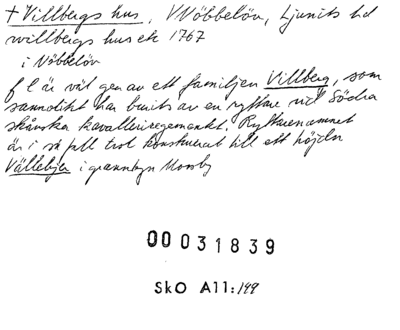 + Villbergs hus, V Vöbbelöv, Ljunits hd
willbergs hus etc 1767
i Vöbbelöv
f l är väl gen av ett familjen Villberg, som
sannolikt har burits av en ryttare vid Södra
skånska kavalleriregementet. Ryttarenamnet
är i så fall trol konstruerat till ett höjdn
Vällebjer i grannbyn Mossby
00 031839
SkO A11:144